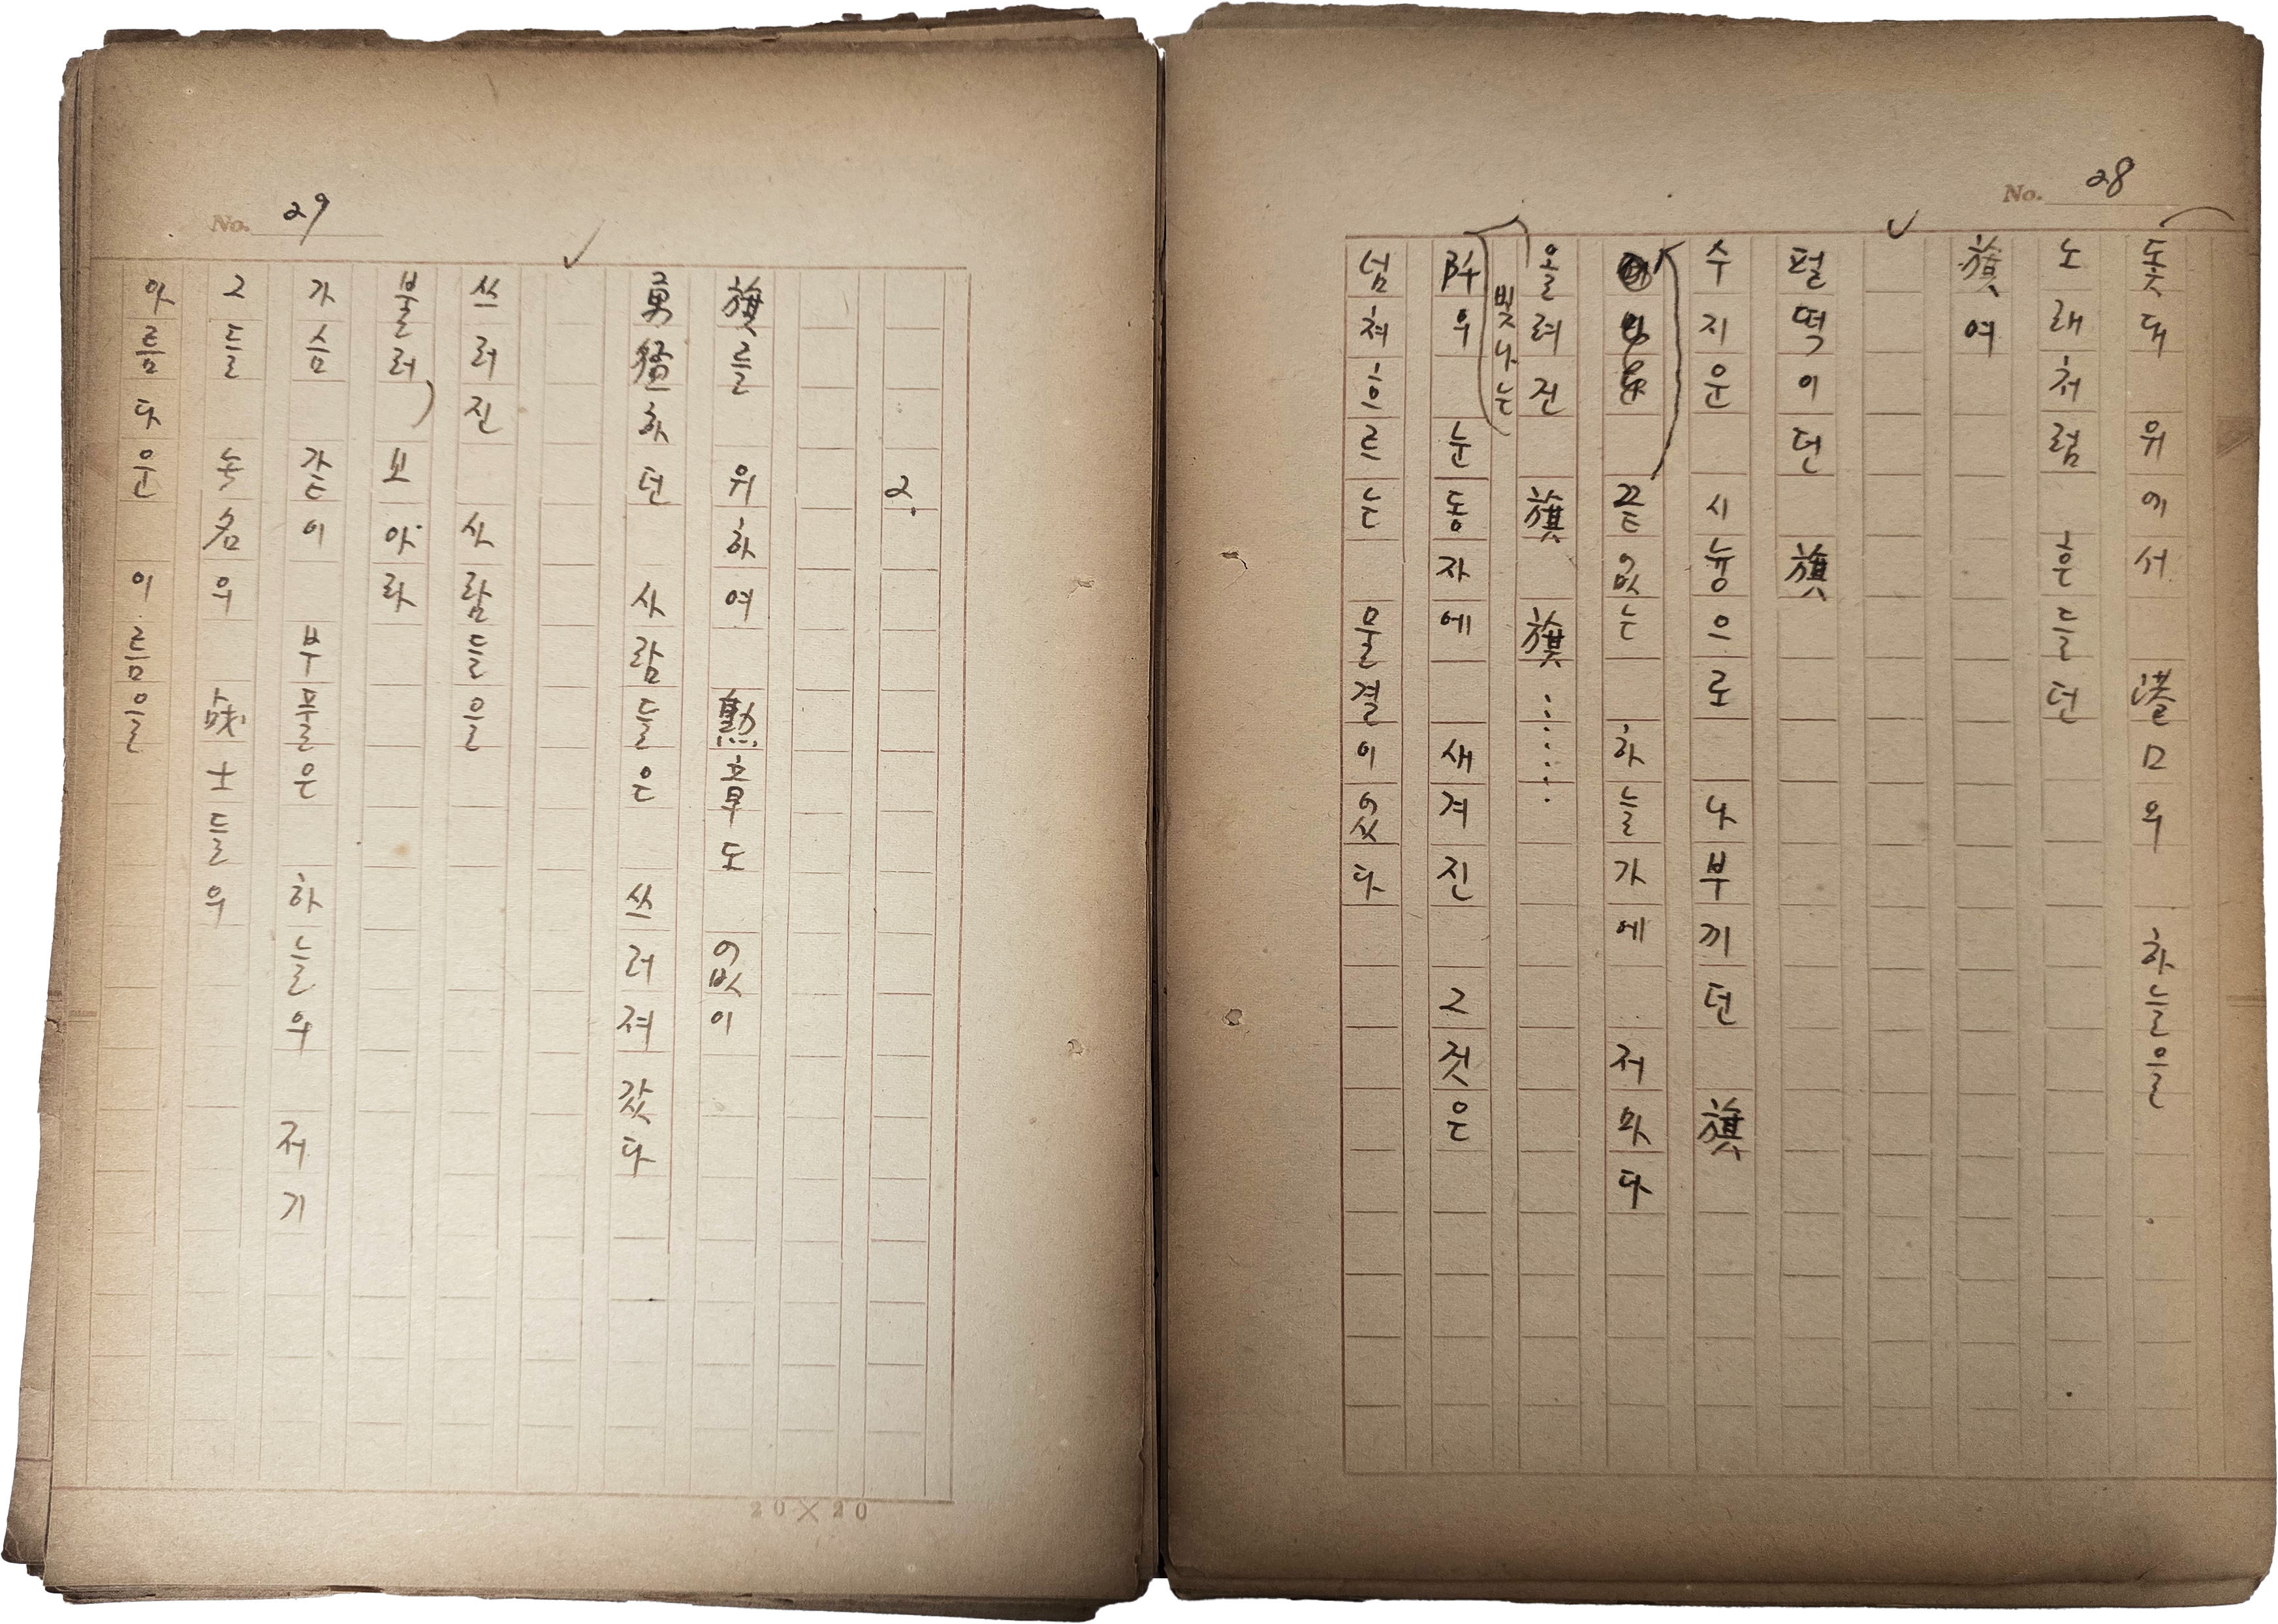 No. 28
돛대 위에서 港口의 하늘을
노래처럼 흔들던
旗여
펄떡이던 旗
수지운 시늉으로 나부끼던 旗
끝없는 하늘가에 저마다
올려진 旗 旗……
빛나는
눈동자에 새겨진 그것은
넘쳐흐르는 물결이었다
No. 29
2.
旗를 위하여 勲章도 없이
勇猛하던 사람들은 쓰러져 갔다
쓰러진 사람들을
불러 보아라
가슴 같이 부풀은 하늘의 저기
그들 战士들의
아름다운 이름을
20×20